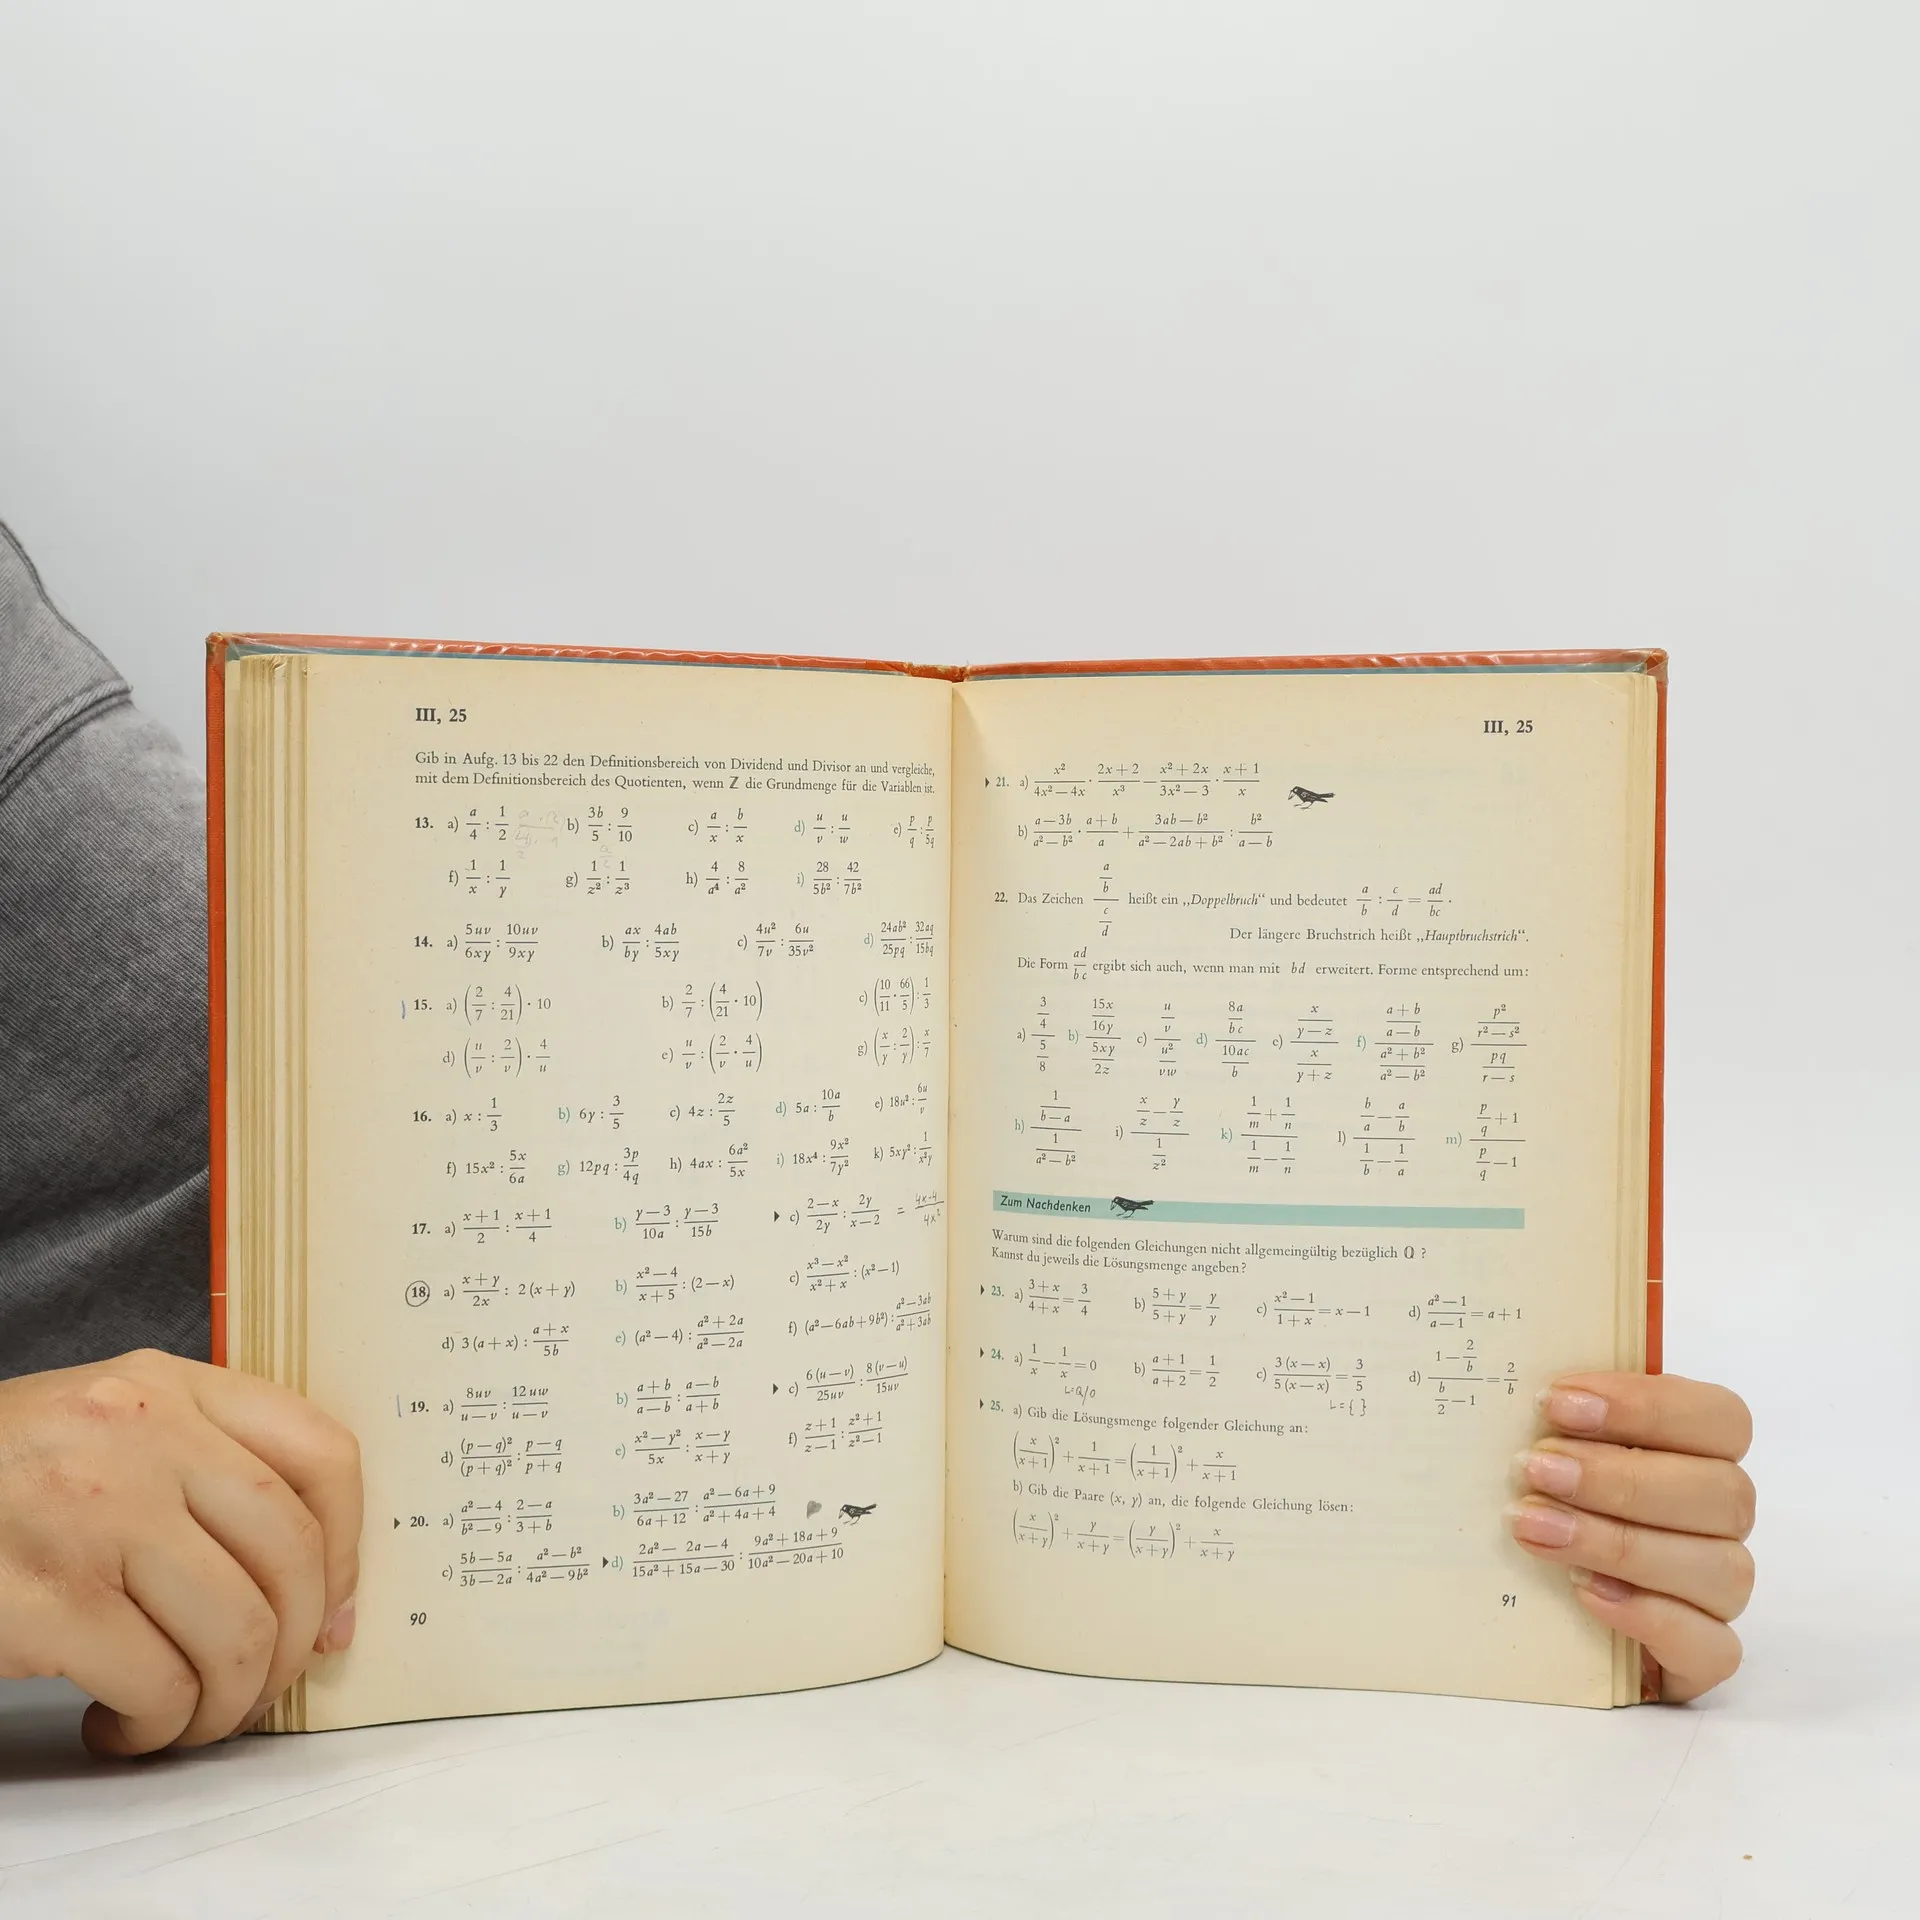 III, 25
Gib in Aufg. 13 bis 22 den Definitionsbereich von Dividend und Divisor an und vergleiche,
mit dem Definitionsbereich des Quotienten, wenn ℤ die Grundmenge für die Variablen ist.
13. a) a/4 : 1/2 b) 3b/5 : 9/10 c) a/x : b/x d) u/v : u/w e) p/q : p/5q
f) 1/x : 1/y g) 1/z² : 1/z³ h) 4/a⁴ : 8/a² i) 28/5b² : 42/7b²
14. a) 5uv/6xy : 10uv/9xy b) ax/by : 4ab/5xy c) 4u²/7v : 6u/35v² d) 24ab²/25pq : 32aq/15bq
15. a) (2/7 : 4/21) · 10 b) 2/7 : (4/21 · 10) c) (10/11 · 66/5) : 1/3
d) (u/v : 2/v) · 4/u e) u/v : (2/v · 4/u) g) (x/y : 2/y) : x/7
16. a) x : 1/3 b) 6y : 3/5 c) 4z : 2z/5 d) 5a : 10a/b e) 18u² : 6u/v
f) 15x² : 5x/6a g) 12pq : 3p/4q h) 4ax : 6a²/5x i) 18x⁴ : 9x²/7y² k) 5xy² : 1/x²y
17. a) (x+1)/2 : (x+1)/4 b) (y−3)/10a : (y−3)/15b c) (2−x)/2y : 2y/(x−2) =
18. a) (x+y)/2x : 2(x+y) b) (x²−4)/(x+5) : (2−x) c) (x³−x²)/(x²+x) : (x²−1)
d) 3(a+x) : (a+x)/5b e) (a²−4) : (a²+2a)/(a²−2a) f) (a²−6ab+9b²) : (a²−3ab)/(a²+3ab)
19. a) 8uv/(u−v) : 12uw/(u−v) b) (a+b)/(a−b) : (a−b)/(a+b) c) 6(u−v)/25uv : 8(v−u)/15uv
d) (p−q)²/(p+q)² : (p−q)/(p+q) e) (x²−y²)/5x : (x−y)/(x+y) f) (z+1)/(z−1) : (z²+1)/(z²−1)
20. a) (a²−4)/(b²−9) : (2−a)/(3+b) b) (3a²−27)/(6a+12) : (a²−6a+9)/(a²+4a+4)
c) (5b−5a)/(3b−2a) : (a²−b²)/(4a²−9b²) d) (2a²−2a−4)/(15a²+15a−30) : (9a²+18a+9)/(10a²−20a+10)
90
III, 25
21. a) x²/(4x²−4x) · (2x+2)/x³ − (x²+2x)/(3x²−3) · (x+1)/x
b) (a−3b)/(a²−b²) · (a+b)/a + (3ab−b²)/(a²−2ab+b²) : b²/(a−b)
22. Das Zeichen (a/b)/(c/d) heißt ein „Doppelbruch“ und bedeutet a/b : c/d = ad/bc .
Der längere Bruchstrich heißt „Hauptbruchstrich“.
Die Form ad/bc ergibt sich auch, wenn man mit bd erweitert. Forme entsprechend um:
a) (3/4)/(5/8) b) (15x/16y)/(5xy/2z) c) (u/v)/(u²/vw) d) (8a/bc)/(10ac/b) e) (x/(y−z))/(x/(y+z)) f) ((a+b)/(a−b))/((a²+b²)/(a²−b²)) g) (p²/(r²−s²))/(pq/(r−s))
h) (1/(b−a))/(1/(a²−b²)) i) (x/z − y/z)/(1/z²) k) (1/m + 1/n)/(1/m − 1/n) l) (b/a − a/b)/(1/b − 1/a) m) (p/q + 1)/(p/q − 1)
Zum Nachdenken
Warum sind die folgenden Gleichungen nicht allgemeingültig bezüglich ℚ ?
Kannst du jeweils die Lösungsmenge angeben?
23. a) (3+x)/(4+x) = 3/4 b) (5+y)/(5+y) = y/y c) (x²−1)/(1+x) = x−1 d) (a²−1)/(a−1) = a+1
24. a) 1/x − 1/x = 0 b) (a+1)/(a+2) = 1/2 c) 3(x−x)/5(x−x) = 3/5 d) (1 − 2/b)/(b/2 − 1) = 2/b
L=Q/0 L={ }
25. a) Gib die Lösungsmenge folgender Gleichung an:
(x/(x+1))² + 1/(x+1) = (1/(x+1))² + x/(x+1)
b) Gib die Paare (x, y) an, die folgende Gleichung lösen:
(x/(x+y))² + y/(x+y) = (y/(x+y))² + x/(x+y)
91